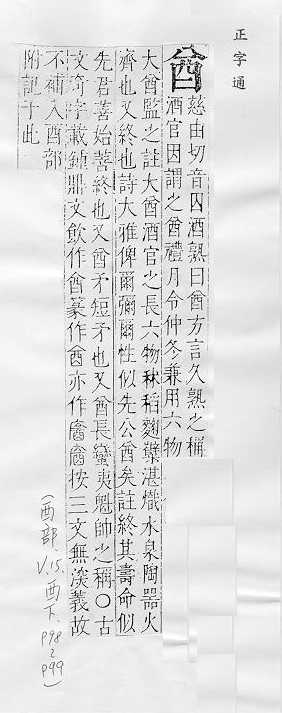 正字通
酋
慈由切音囚酒熟曰酋方言久熟之稱
酒官因謂之酋禮月令仲冬兼用六物
大酋監之註大酋酒官之長六物秫稻麴櫱湛熾水泉陶器火
齊也又終也詩大雅俾爾彌爾性似先公酋矣註終其壽命似
先君善始善終也又酋矛短矛也又酋長蠻夷魁帥之稱〇古
文奇字載鐘鼎文飲作酋篆作酉亦作按三文無深義故
不補入酉部
附記于此
(酉部. V.15. 酉下. p98~p99)